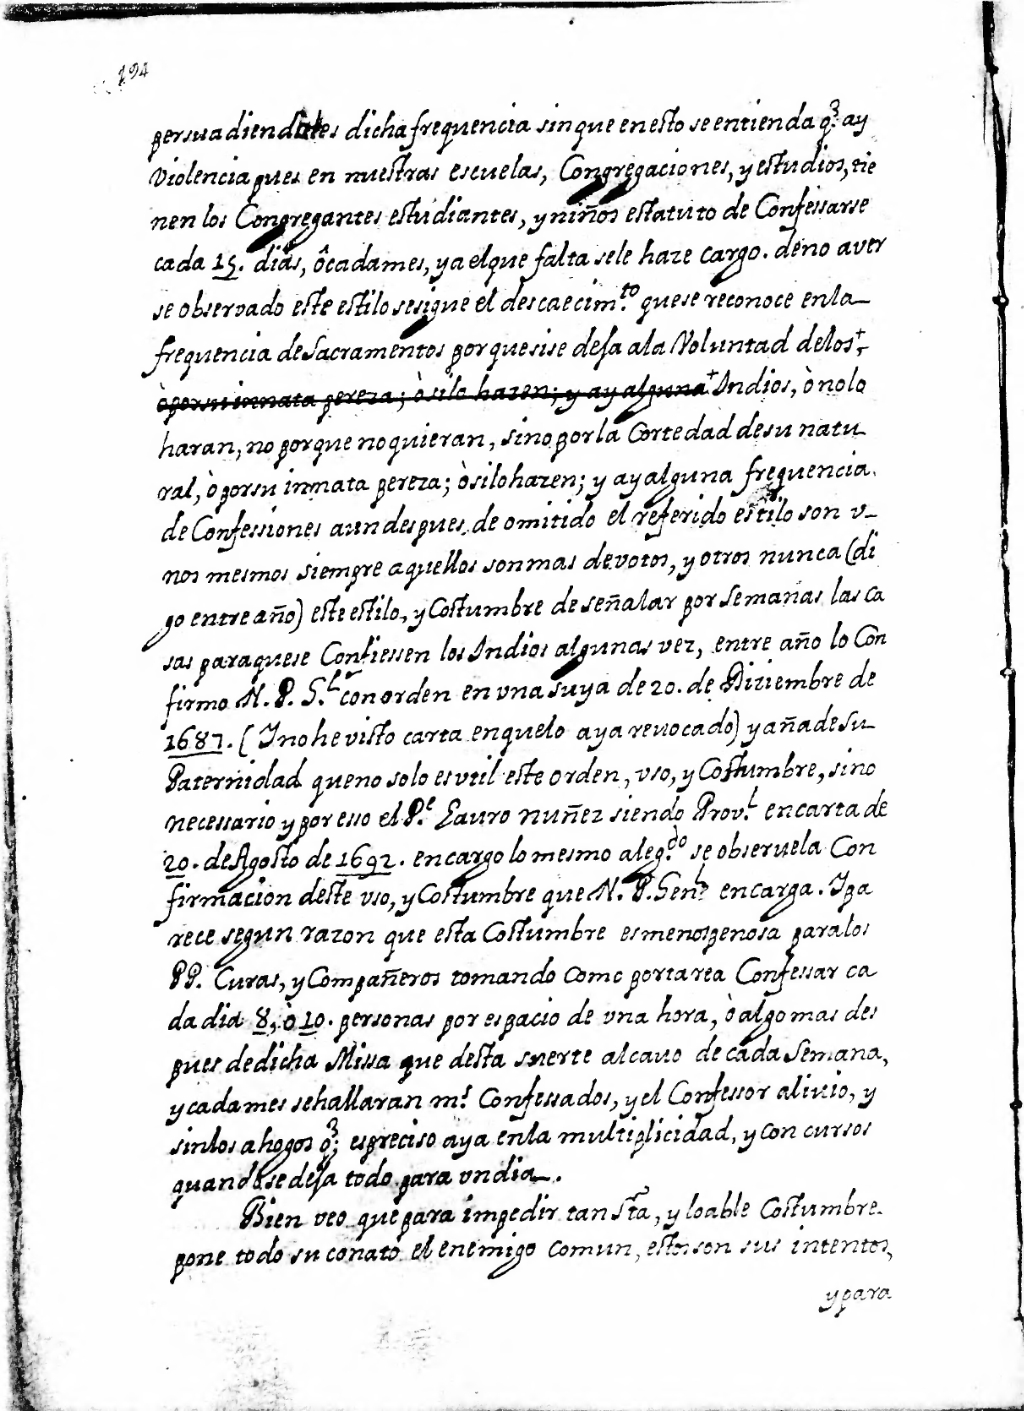 194
persuadiendoles dicha frequencia sin que en esto se entienda q.e ay
Violencia pues en nuestras escuelas, Congregaciones, y estudios, tie
nen los Congregantes estudiantes, y niños estatuto de Confessarse
cada 15. dias, ò cada mes, y a el que falta se le haze cargo. de no aver
se observado este estilo se sigue el descaecim.to que se reconoce en la
frequencia de Sacramentos porque si se deja a la Voluntad de los +
ò por su innata pereza; ò si lo hazen; y ay alguna + Indios, ò no lo
haran, no porque no quieran, sino por la Cortedad de su natu
ral, ò por su innata pereza; ò si lo hazen; y ay alguna frequencia
de Confessiones aun despues de omitido el referido estilo son v
nos mesmos siempre aquellos son mas devotos, y otros nunca (di
go entre año) este estilo, y Costumbre de señalar por Semanas las ca
sas para que se Confiessen los Indios algunas vez, entre año lo Con
firmo N. P. G.l con orden en vna suya de 20. de Diziembre de
1687. (I no he visto carta en que lo aya revocado) y añade Su
Paternidad que no solo es vtil este orden, vso, y Costumbre, sino
necessario y por esso el P.e Lauro nuñez siendo Prov.l en carta de
20. de Agosto de 1692. encargo lo mesmo aleg.do se observe la Con
firmacion deste vso, y Costumbre que N. P. Gen.l encarga. I pa
rece segun razon que esta Costumbre es menos penosa para los
PP. Curas, y Compañeros tomando como por tarea Confessar ca
da dia 8, ò 10. personas por espacio de vna hora, ò algo mas des
pues de dicha Missa que desta suerte al cauo de cada Semana,
y cada mes se hallaran m.s Confessados, y el Confessor alivio, y
sin los ahogos q.e es preciso aya en la multiplicidad, y con cursos
quando se deja todo para vn dia.
Bien veo que para impedir tan S.ta, y loable Costumbre
pone todo su conato el enemigo comun, estos son sus intentos,
y para